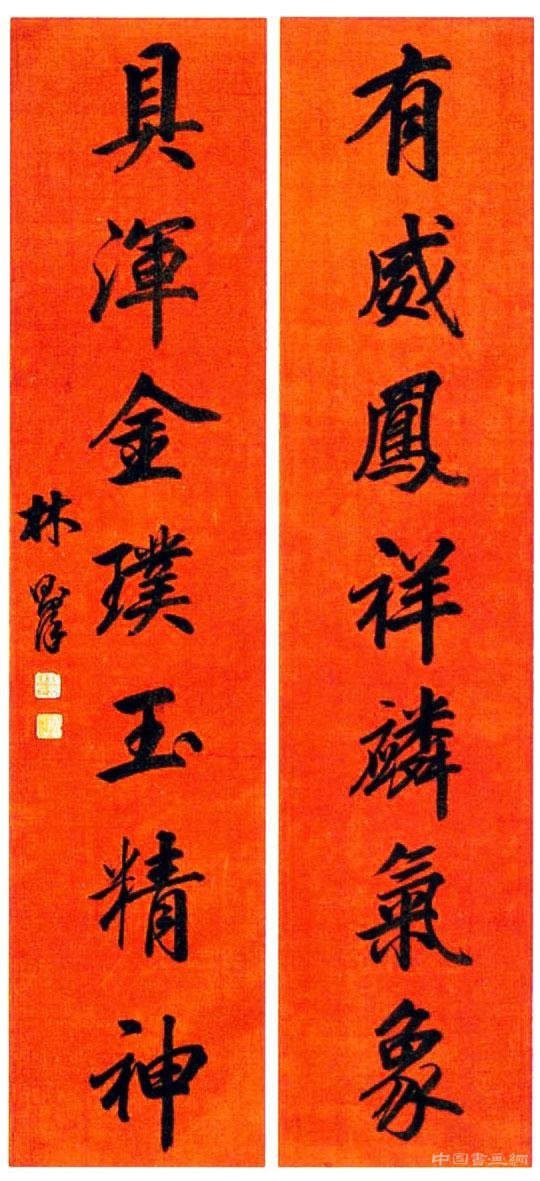 有威鳳祥麟氣象
具渾金璞玉精神
林
中国書画網